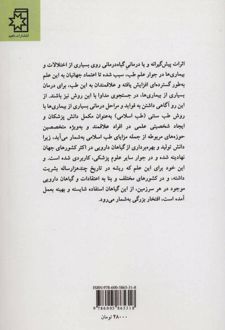 انتشارات ناهید
اثرات پیش‌گیرانه و یا درمانی گیاه‌درمانی روی بسیاری از اختلالات و
بیماری‌ها در جوار علم طب، سبب شده تا اعتماد جهانیان به این علم
به‌طور گسترده‌ای افزایش یافته و علاقمندان به این طب، برای درمان
بسیاری از بیماری‌ها، در جستجوی مداوا با این روش نیز باشند. از
این رو آگاهی داشتن به فواید و مراحل درمانی بسیاری از بیماری‌ها با
روش طب سنتی (طب اسلامی) به‌عنوان مکمل دانش پزشکان و
ایجاد شخصیتی علمی در افراد علاقمند و به‌ویژه متخصصین
حوزه‌های مربوطه از جمله مزایای طب اسلامی به‌شمار می‌آید، زیرا
دانش تولید و بهره‌برداری از گیاهان دارویی در اکثر کشورهای جهان
نهادینه شده و در جوار سایر علوم پزشکی، کاربردی شده است.
این خود برای این علم که ریشه در تاریخ چندهزارساله بشریت
داشته، و در کشورهای مختلف و بنا به اعتقادات و گیاهان دارویی
موجود در هر سرزمین، از این گیاهان استفاده شایسته و بهینه بعمل
آمده است، افتخار بزرگی به‌شمار می‌رود.
ISBN: 978-600-5865-31-8
9 786005 865318
۲۸۰۰۰ تومان